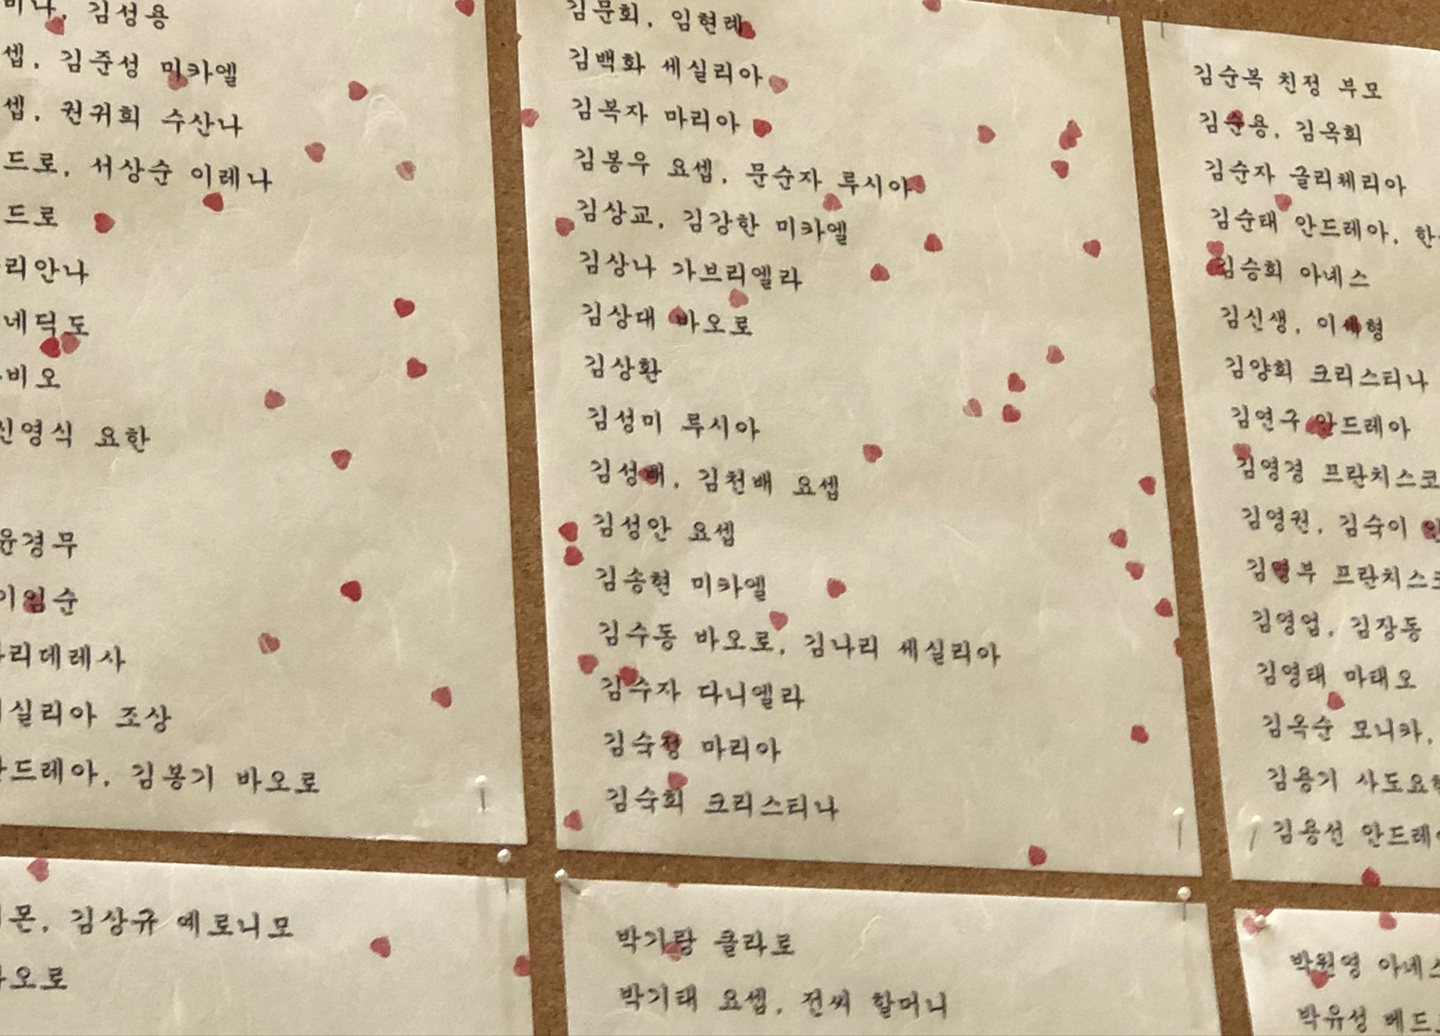 김성용
김준성 미카엘
권귀희 수산나
드로, 서상순 이레나
드로
리안나
네딕도
비오
신영식 요한
윤경무
이임순
리데레사
실리아 조상
드레아, 김봉기 바오로
김문회, 임현례
김백화 세실리아
김복자 마리아
김봉우 요셉, 문순자 루시아
김상교, 김강한 미카엘
김상나 가브리엘라
김상대 바오로
김상환
김성미 루시아
김성배, 김천배 요셉
김성안 요셉
김송현 미카엘
김수동 바오로, 김나리 세실리아
김수자 다니엘라
김숙정 마리아
김숙희 크리스티나
김순복 친정 부모
김순용, 김옥희
김순자 글리체리아
김순태 안드레아,
김승희 아녜스
김신생, 이세형
김양희 크리스티나
김연구 안드레아
김영경 프란치스코
김영권, 김숙이
김영부 프란치스코
김영업, 김장동
김영태 마태오
김옥순 모니카,
김용기 사도요한
김용선 안드레아
몬, 김상규 예로니모
오로
박기랑 클라로
박기태 요셉, 전씨 할머니
박원영 아녜스
박유성 베드